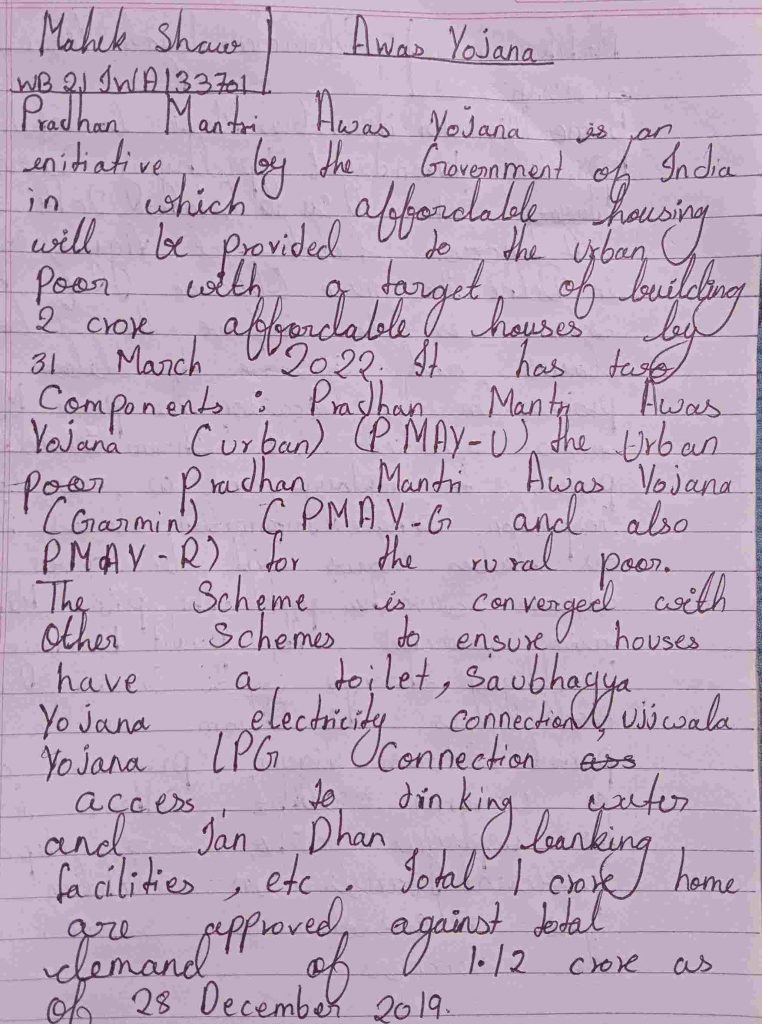 Mahek Shaw | Awas Yojana
WB 21 JWA133701
Pradhan Mantri Awas Yojana is an
enitiative by the Government of India
in which affordable housing
will be provided to the urban
poor with a target of building
2 crore affordable houses by
31 March 2022. It has two
Components : Pradhan Mantri Awas
Yojana (urban) (PMAY-U) the Urban
poor Pradhan Mantri Awas Yojana
(Garmin) (PMAY-G and also
PMAY-R) for the rural poor.
The Scheme is converged with
Other Schemes to ensure houses
have a toilet, Saubhagya
Yojana electricity connection, ujjwala
Yojana LPG Connection
access, to drinking water
and Jan Dhan banking
facilities, etc. Total 1 crore home
are approved against total
demand of 1.12 crore as
of 28 December 2019.